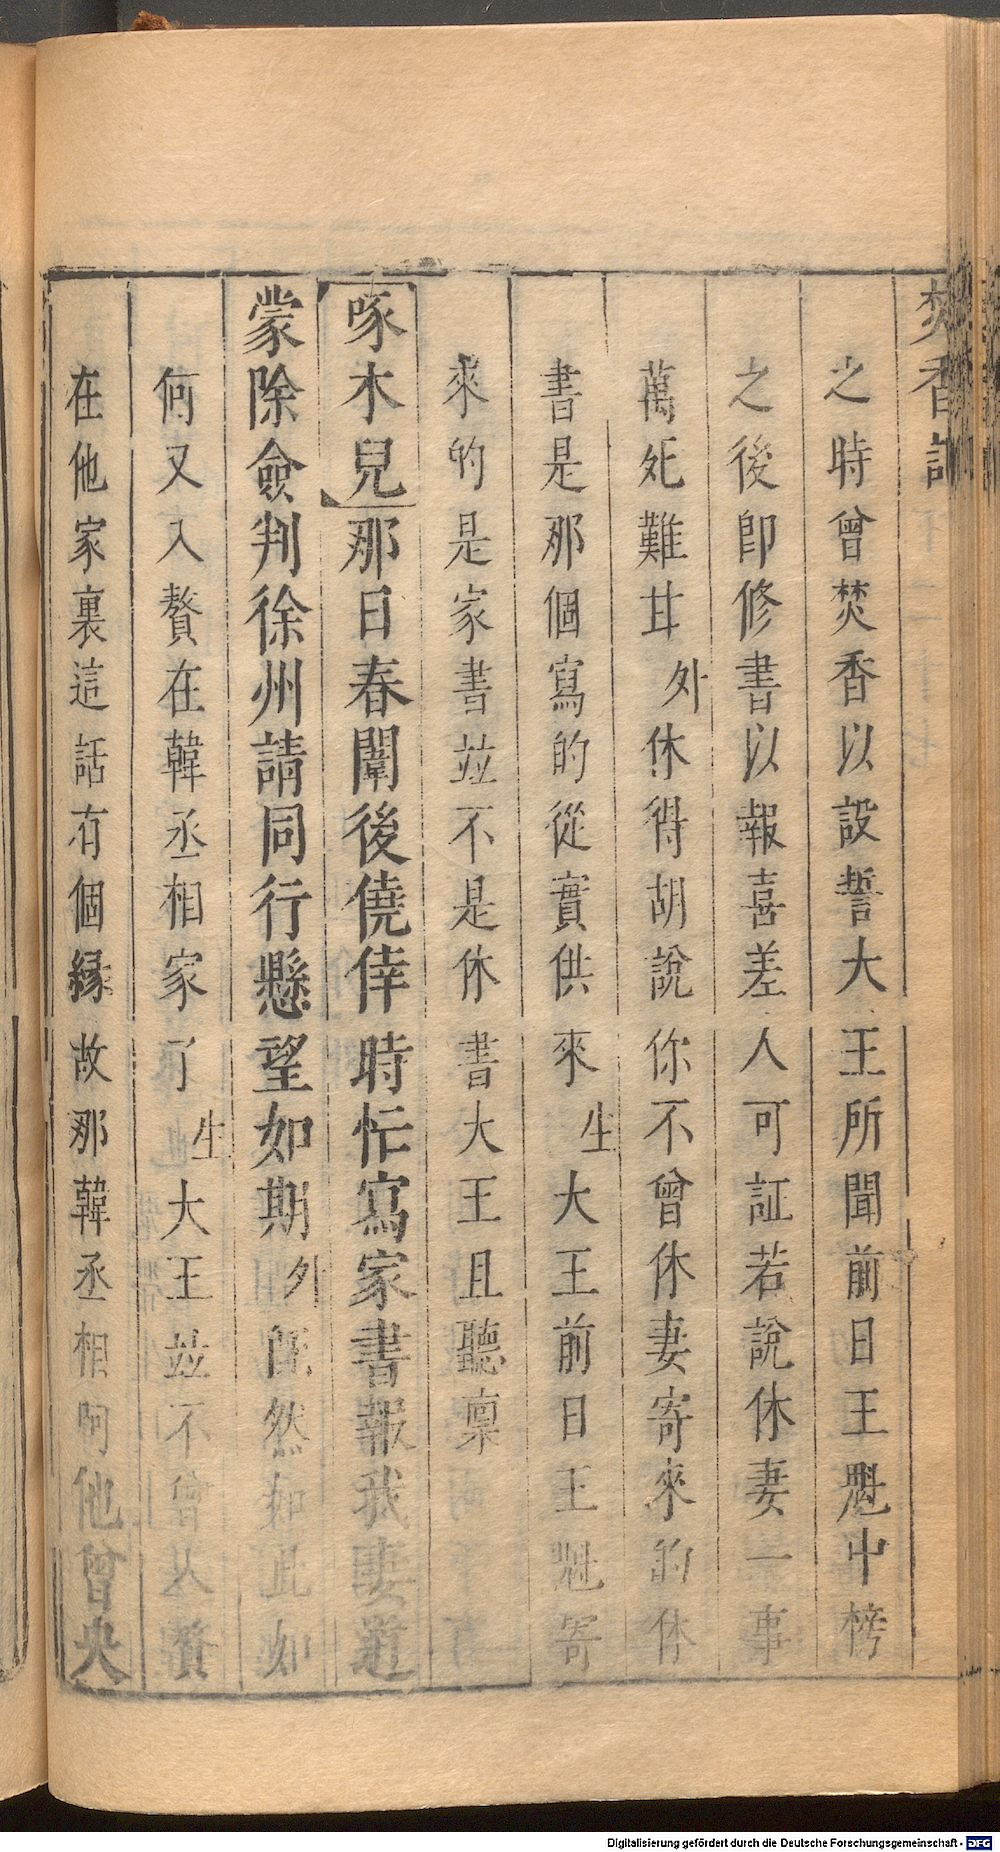 焚香記
之時曾焚香以設誓大王所聞前日王魁中榜
之後即修書以報喜差人可証若說休妻一事
萬死難甘外休得胡說你不曾休妻寄來的休
書是那個寫的從實供來生大王前日王魁寄
來的是家書並不是休書大王且聽稟
啄木兒那日春闈後僥倖時忙寫家書報我妻道
蒙除僉判徐州請同行懸望如期外旣然如此如
何又入贅在韓丞相家了生大王並不曾入贅
在他家裏這話有個緣故那韓丞相呵他曾央
Digitalisierung gefördert durch die Deutsche Forschungsgemeinschaft - DFG